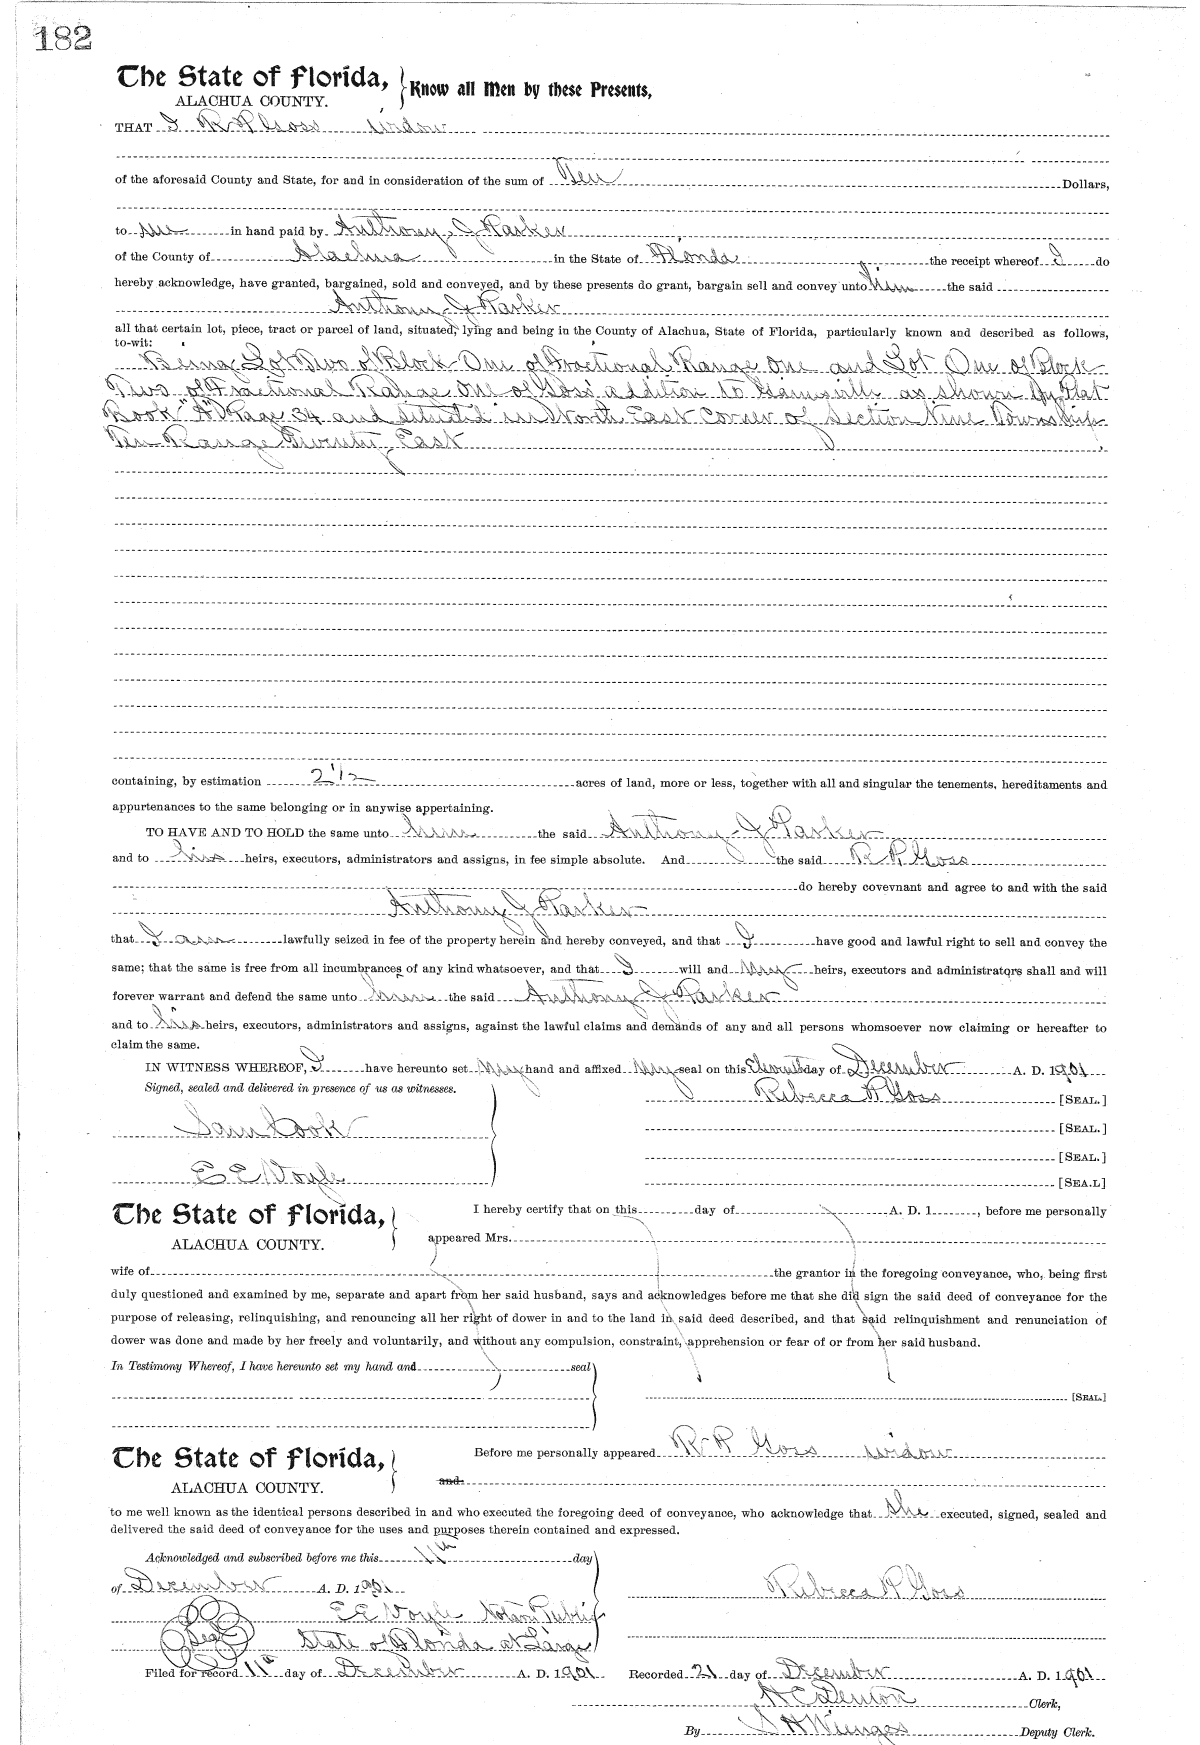 182
The State of Florida, Know all Men by these Presents,
ALACHUA COUNTY.
THAT I R P Goss widow
of the aforesaid County and State, for and in consideration of the sum of Ten Dollars,
to me in hand paid by Anthony J Parker
of the County of Alachua in the State of Florida the receipt whereof I do
hereby acknowledge, have granted, bargained, sold and conveyed, and by these presents do grant, bargain sell and convey unto him the said
Anthony J Parker
all that certain lot, piece, tract or parcel of land, situated, lying and being in the County of Alachua, State of Florida, particularly known and described as follows,
to-wit:
Being Lot Two of Block One of Fractional Range One and Lot One of Block
Two of Fractional Range One of Goss' addition to Gainsville as shown by Plat
Book "A" Page 34 and situated in North East Corner of Section Nine Township
Ten Range Twenty East
containing, by estimation 2 1/2 acres of land, more or less, together with all and singular the tenements, hereditaments and
appurtenances to the same belonging or in anywise appertaining.
TO HAVE AND TO HOLD the same unto him the said Anthony J Parker
and to his heirs, executors, administrators and assigns, in fee simple absolute. And I the said R P Goss
do hereby covevnant and agree to and with the said
Anthony J Parker
that I am lawfully seized in fee of the property herein and hereby conveyed, and that I have good and lawful right to sell and convey the
same; that the same is free from all incumbrances of any kind whatsoever, and that I will and my heirs, executors and administrators shall and will
forever warrant and defend the same unto him the said Anthony J Parker
and to his heirs, executors, administrators and assigns, against the lawful claims and demands of any and all persons whomsoever now claiming or hereafter to
claim the same.
IN WITNESS WHEREOF, I have hereunto set my hand and affixed my seal on this day of December A. D. 1901
Signed, sealed and delivered in presence of us as witnesses.
Rebecca P Goss [SEAL.]
Sam Cook [SEAL.]
[SEAL.]
E E Voyle [SEA.L]
The State of Florida, I hereby certify that on this day of A. D. 1 , before me personally
ALACHUA COUNTY. appeared Mrs.
wife of the grantor in the foregoing conveyance, who, being first
duly questioned and examined by me, separate and apart from her said husband, says and acknowledges before me that she did sign the said deed of conveyance for the
purpose of releasing, relinquishing, and renouncing all her right of dower in and to the land in said deed described, and that said relinquishment and renunciation of
dower was done and made by her freely and voluntarily, and without any compulsion, constraint, apprehension or fear of or from her said husband.
In Testimony Whereof, I have hereunto set my hand and seal
[SEAL.]
The State of Florida, Before me personally appeared R P Goss widow
ALACHUA COUNTY. and
to me well known as the identical persons described in and who executed the foregoing deed of conveyance, who acknowledge that she executed, signed, sealed and
delivered the said deed of conveyance for the uses and purposes therein contained and expressed.
Acknowledged and subscribed before me this 11th day
of December A. D. 1901 Rebecca P Goss
E E Voyle Notary Public
Seal State of Florida at Large
Filed for record 11th day of December A. D. 1901 Recorded 21 day of December A. D. 1901
H C Denton Clerk,
By S H Wienges Deputy Clerk.